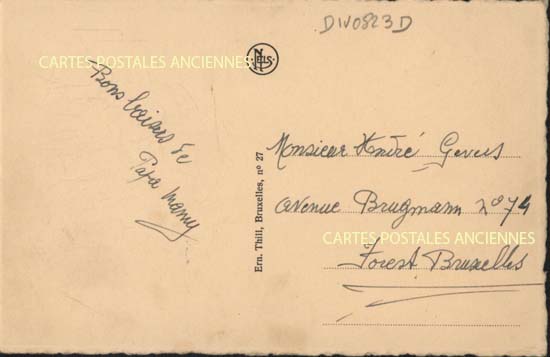 DIV0823D
NELS
CARTES POSTALES ANCIENNES
Bons baisers de
Papa Mamy
Ern. Thill, Bruxelles, n° 27
Monsieur André Gevers
Avenue Brugmann N° 74
CARTES POSTALES ANCIENNES
Forest Bruxelles